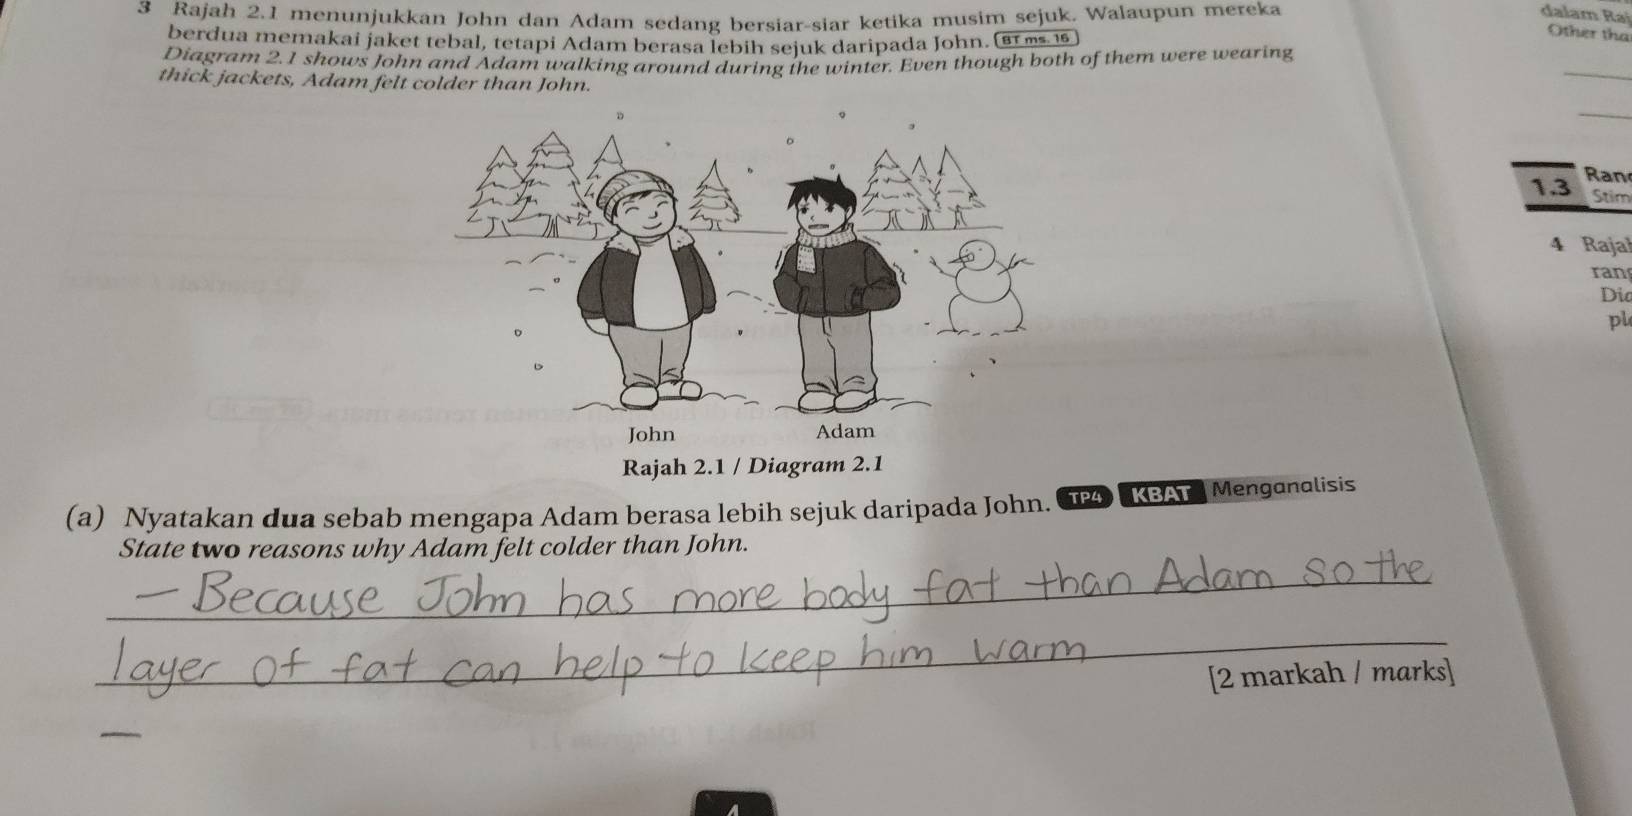 3 Rajah 2.1 menunjukkan John dan Adam sedang bersiar-siar ketika musim sejuk. Walaupun mereka
berdua memakai jaket tebal, tetapi Adam berasa lebih sejuk daripada John. BT ms. 16
Diagram 2.1 shows John and Adam walking around during the winter. Even though both of them were wearing
thick jackets, Adam felt colder than John.
John
Adam
Rajah 2.1 / Diagram 2.1
(a) Nyatakan dua sebab mengapa Adam berasa lebih sejuk daripada John. TP4 KBAT Menganalisis
State two reasons why Adam felt colder than John.
- Because John has more body fat than Adam so the
layer of fat can help to keep him warm
[2 markah / marks]
dalam Raj
Other tha
1.3 Ran
Stim
4 Rajah
rang
Dia
pl